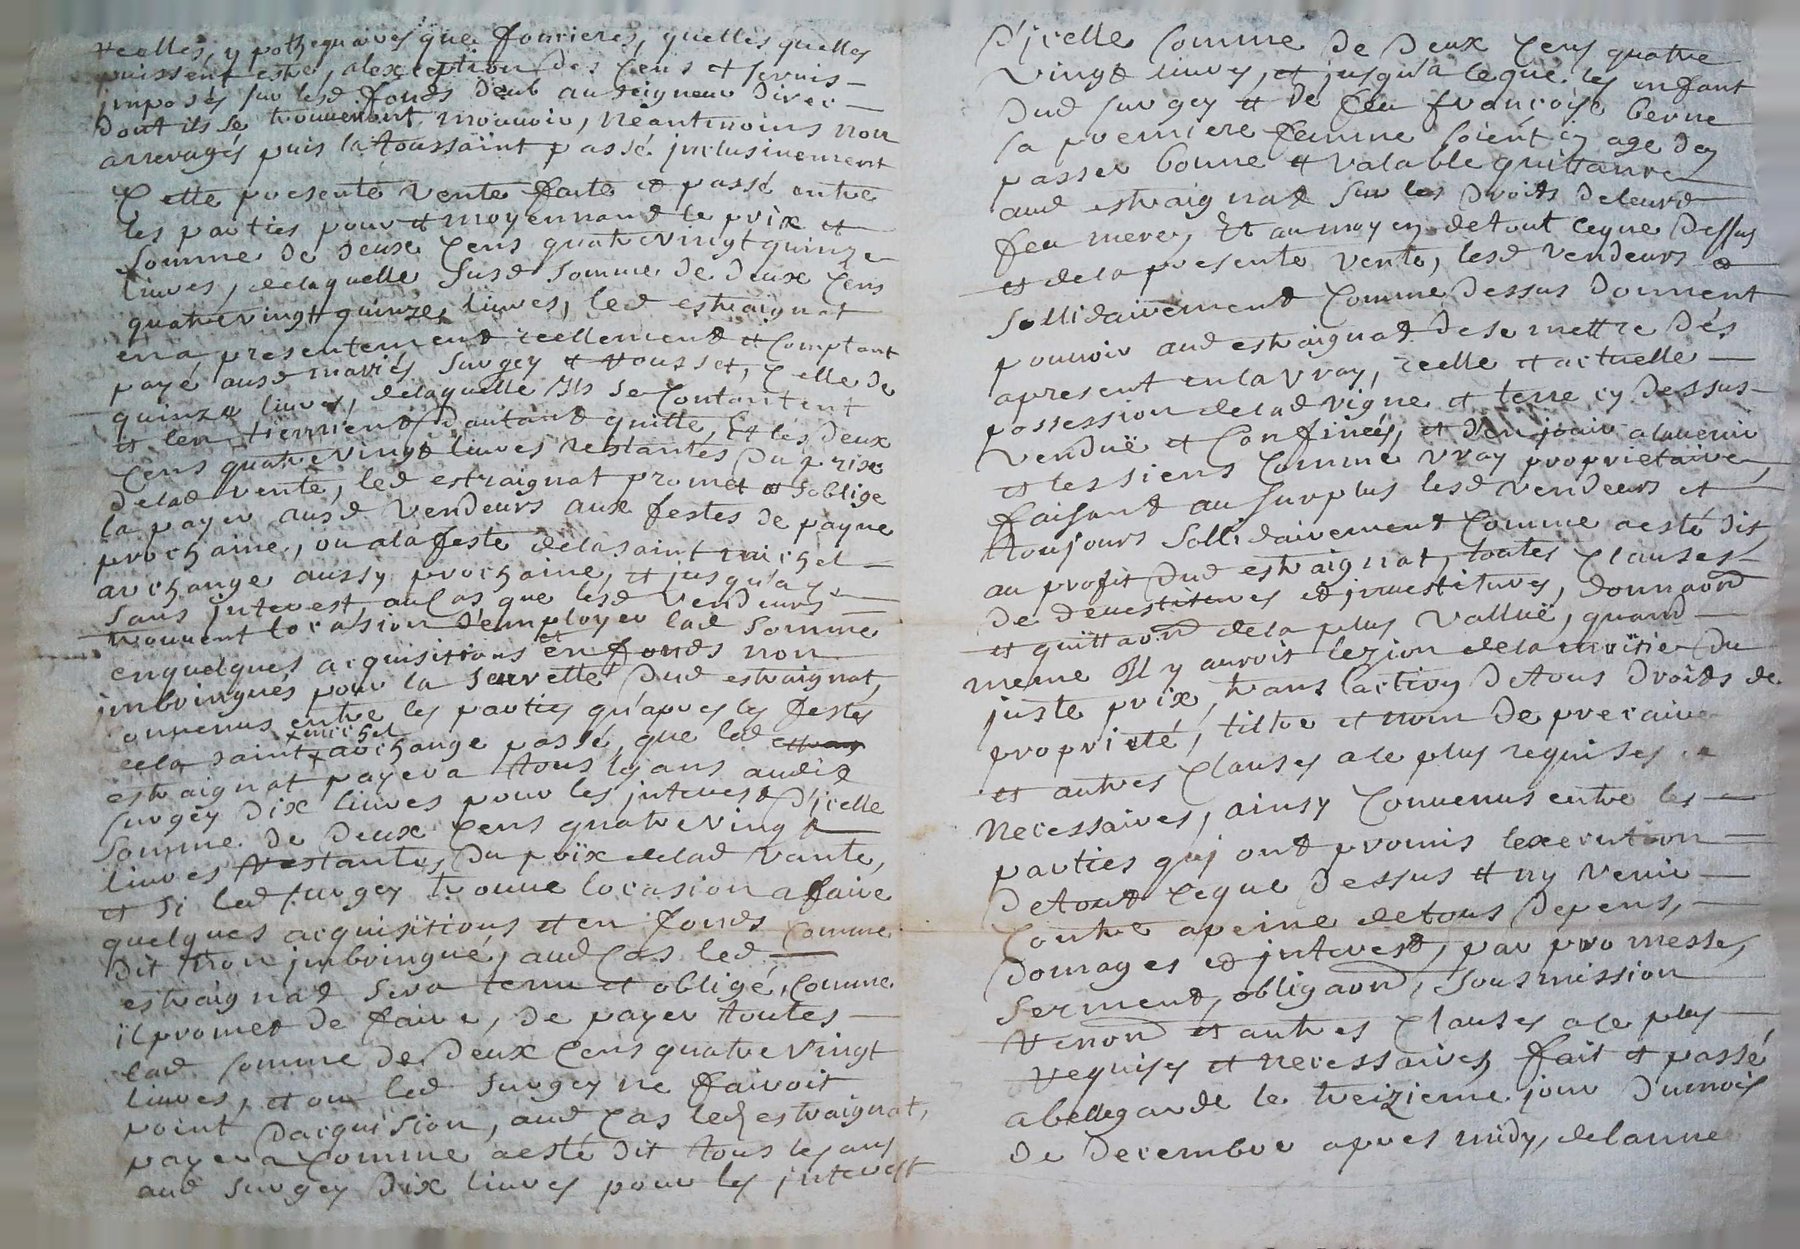 reelles, ypothequaires que fonsieres, quelles quelles
puissent estre, alexception des Cens et servis
imposés sur lesd fonds deub au seigneur direc
dont ils se trouveront mouvoir, neantmoins non
arreragés puis la toussaint passé inclusivement
Cette presente vente faite et passé entre
les parties pour et moyennand le prix et
somme de deux Cens quatrevingt quinze
livres, de laquelle susd somme de deux Cens
quatrevingt quinze livres, led estraignat
en a presentement reellement et Comptant
payé ausd mariés surgey et rousset, Celle de
quinze livres, delaquelle Ils se Contentent
et len tiennent dautant quitte, Et les deux
Cens quatrevingt livres restantes du prix
delad vente, led estraignat promet et soblige
la payer ausd vendeurs aux festes de payne
prochaine, ou ala feste dela saint michel
archange aussy prochaine, et jusqu'a
sans interest au Cas que lesd vendeurs
trouvent locasion demployer lad somme
en quelques acquisitions et en fonds non
imbringués pour la seurette dud estraignat,
Convenus entre les parties qu'apres les festes
dela saint michel archange passé, que led
estraignat payera tous les ans audit
surgey dix livres pour les interest d'icelle
somme de deux Cens quatrevingt
livres restantes du prix delad vante,
et si led surgey trouve locasion a faire
quelques acquisitions et en fonds Comme
dit non imbringué, aud Cas led
estraignat sera tenu et obligé, Comme
il promet de faire, de payer toutes
lad somme de deux Cens quatre vingt
livres, et ou led surgey ne fairoit
point dacquision, aud Cas led estraignat,
payera Comme a esté dit tous les ans
aud surgey dix livres pour les interest
d'icelle somme de deux Cens quatre
vingt livres, et jusqu'a ceque les enfant
dud surgey et de feu françoise berne
sa premiere femme soient en age den
passer bonne et valable quittance
aud estraignat sur les droits deleurd
feu mere, Et au moyen detout ceque dessus
et dela presente vente, lesd vendeurs
sollidairement Comme dessus donnent
pouvoir aud estraignat de se mettre dés
apresent en la vray, reelle et actuelle
possession delad vigne et terre cy dessus
venduë et Confinées, et d'en jouir alavenir
et les siens Comme vray proprietaire,
faisant au surplus lesd vendeurs et
toujours sollidairement Comme a esté dit,
au profit dud estraignat, toutes Clauses
de devestitures et investitures, donnaon
et quittaon dela plus valluë, quand
meme Il y auroit lezion dela moitier du
juste prix, translaction detous droits de
proprieté, tiltre et nom de precaire
et autres Clauses a le plus requises et
necessaires, ainsy Convenus entre les
parties qui ont promis lexecution
detout Ceque dessus et ny venir
Contre apeine detous depens,
domages et interest, par promesse,
serment, obligaon, sousmission
renon et autres Clauses a le plus
requises et necessaires, fait et passé
a bellegarde le treizieme jour dumois
de Decembre apres midy, delanne